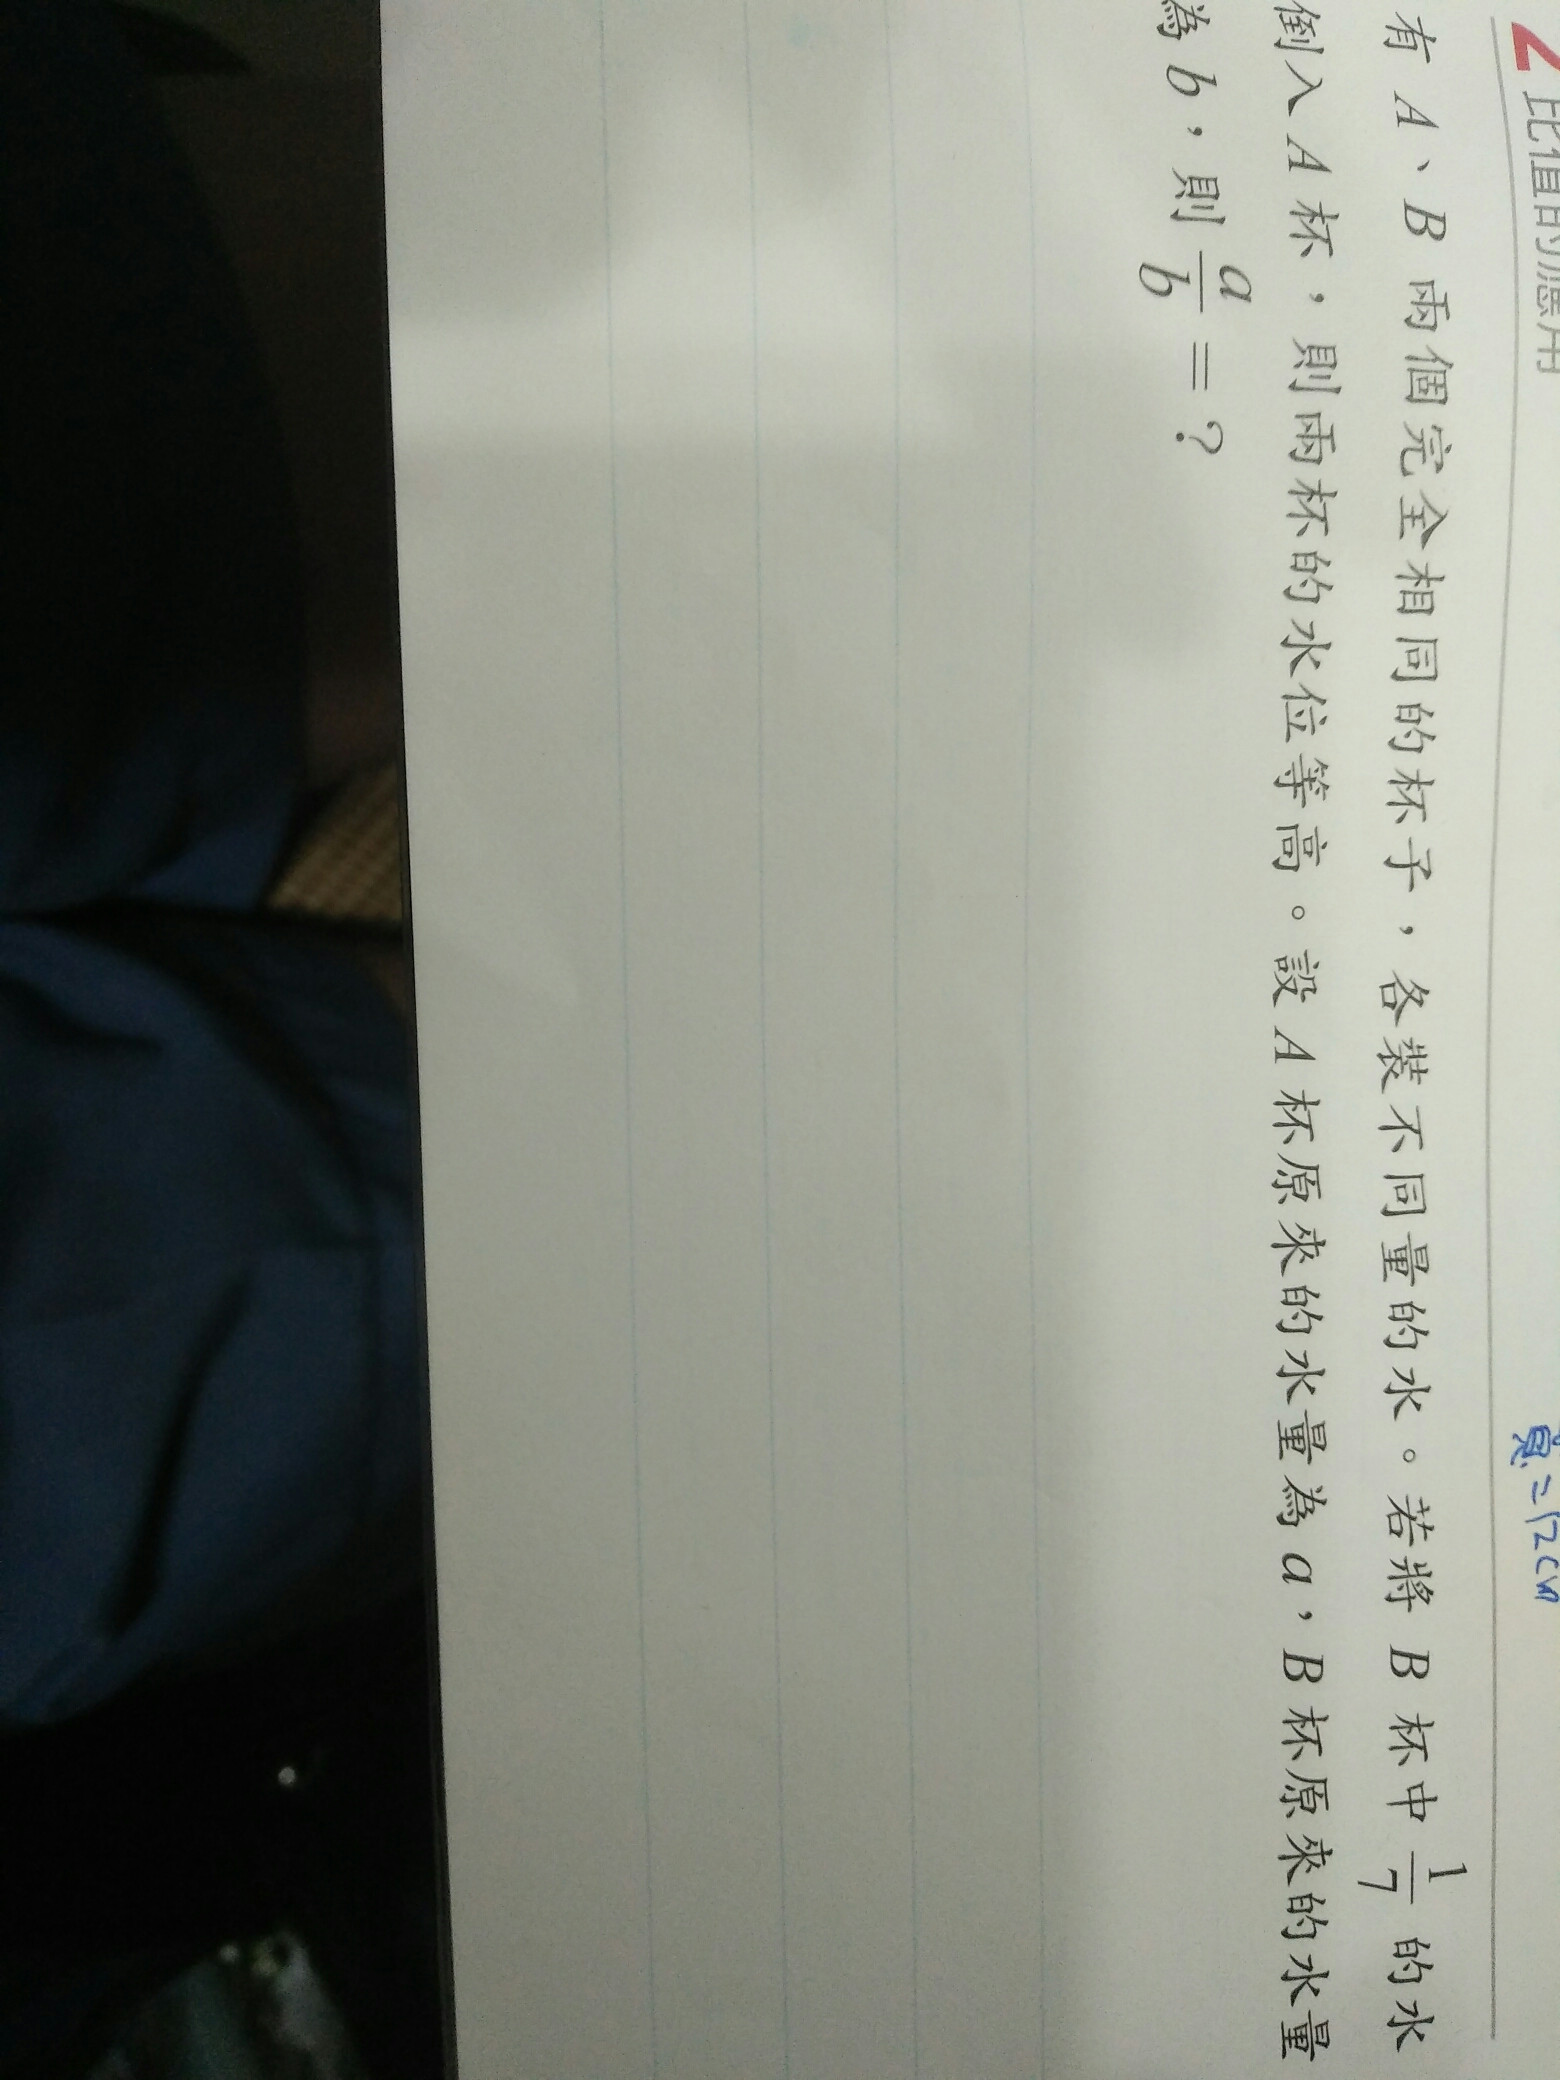 2 比值的應用
意=12cm
有 A、B 兩個完全相同的杯子,各裝不同量的水。若將 B 杯中 1/7 的水
倒入 A 杯,則兩杯的水位等高。設 A 杯原來的水量為 a,B 杯原來的水量
為 b,則 a/b = ?